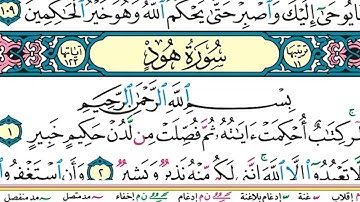 مَا يُوحَىٰٓ إِلَيْكَ وَٱصْبِرْ حَتَّىٰ يَحْكُمَ ٱللَّهُ وَهُوَ خَيْرُ ٱلْحَٰكِمِينَ ١٠٩
ترتيبها ١١ سُورَةُ هُودٍ آياتها ١٢٣
بِسْمِ ٱللَّهِ ٱلرَّحْمَٰنِ ٱلرَّحِيمِ
كِتَٰبٌ أُحْكِمَتْ ءَايَٰتُهُۥ ثُمَّ فُصِّلَتْ مِن لَّدُنْ حَكِيمٍ خَبِيرٍ ١
تَعْبُدُوٓا۟ إِلَّا ٱللَّهَ إِنَّنِى لَكُم مِّنْهُ نَذِيرٌ وَبَشِيرٌ ٢ وَأَنِ ٱسْتَغْفِرُوا۟
إقلاب غنة إدغام بلاغنة إدغام إخفاء مد متصل مد منفصل